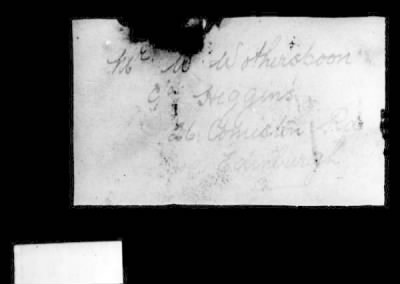 Mr W Wotherspoon
C/o Higgins
Comiston Rd
Edinburgh